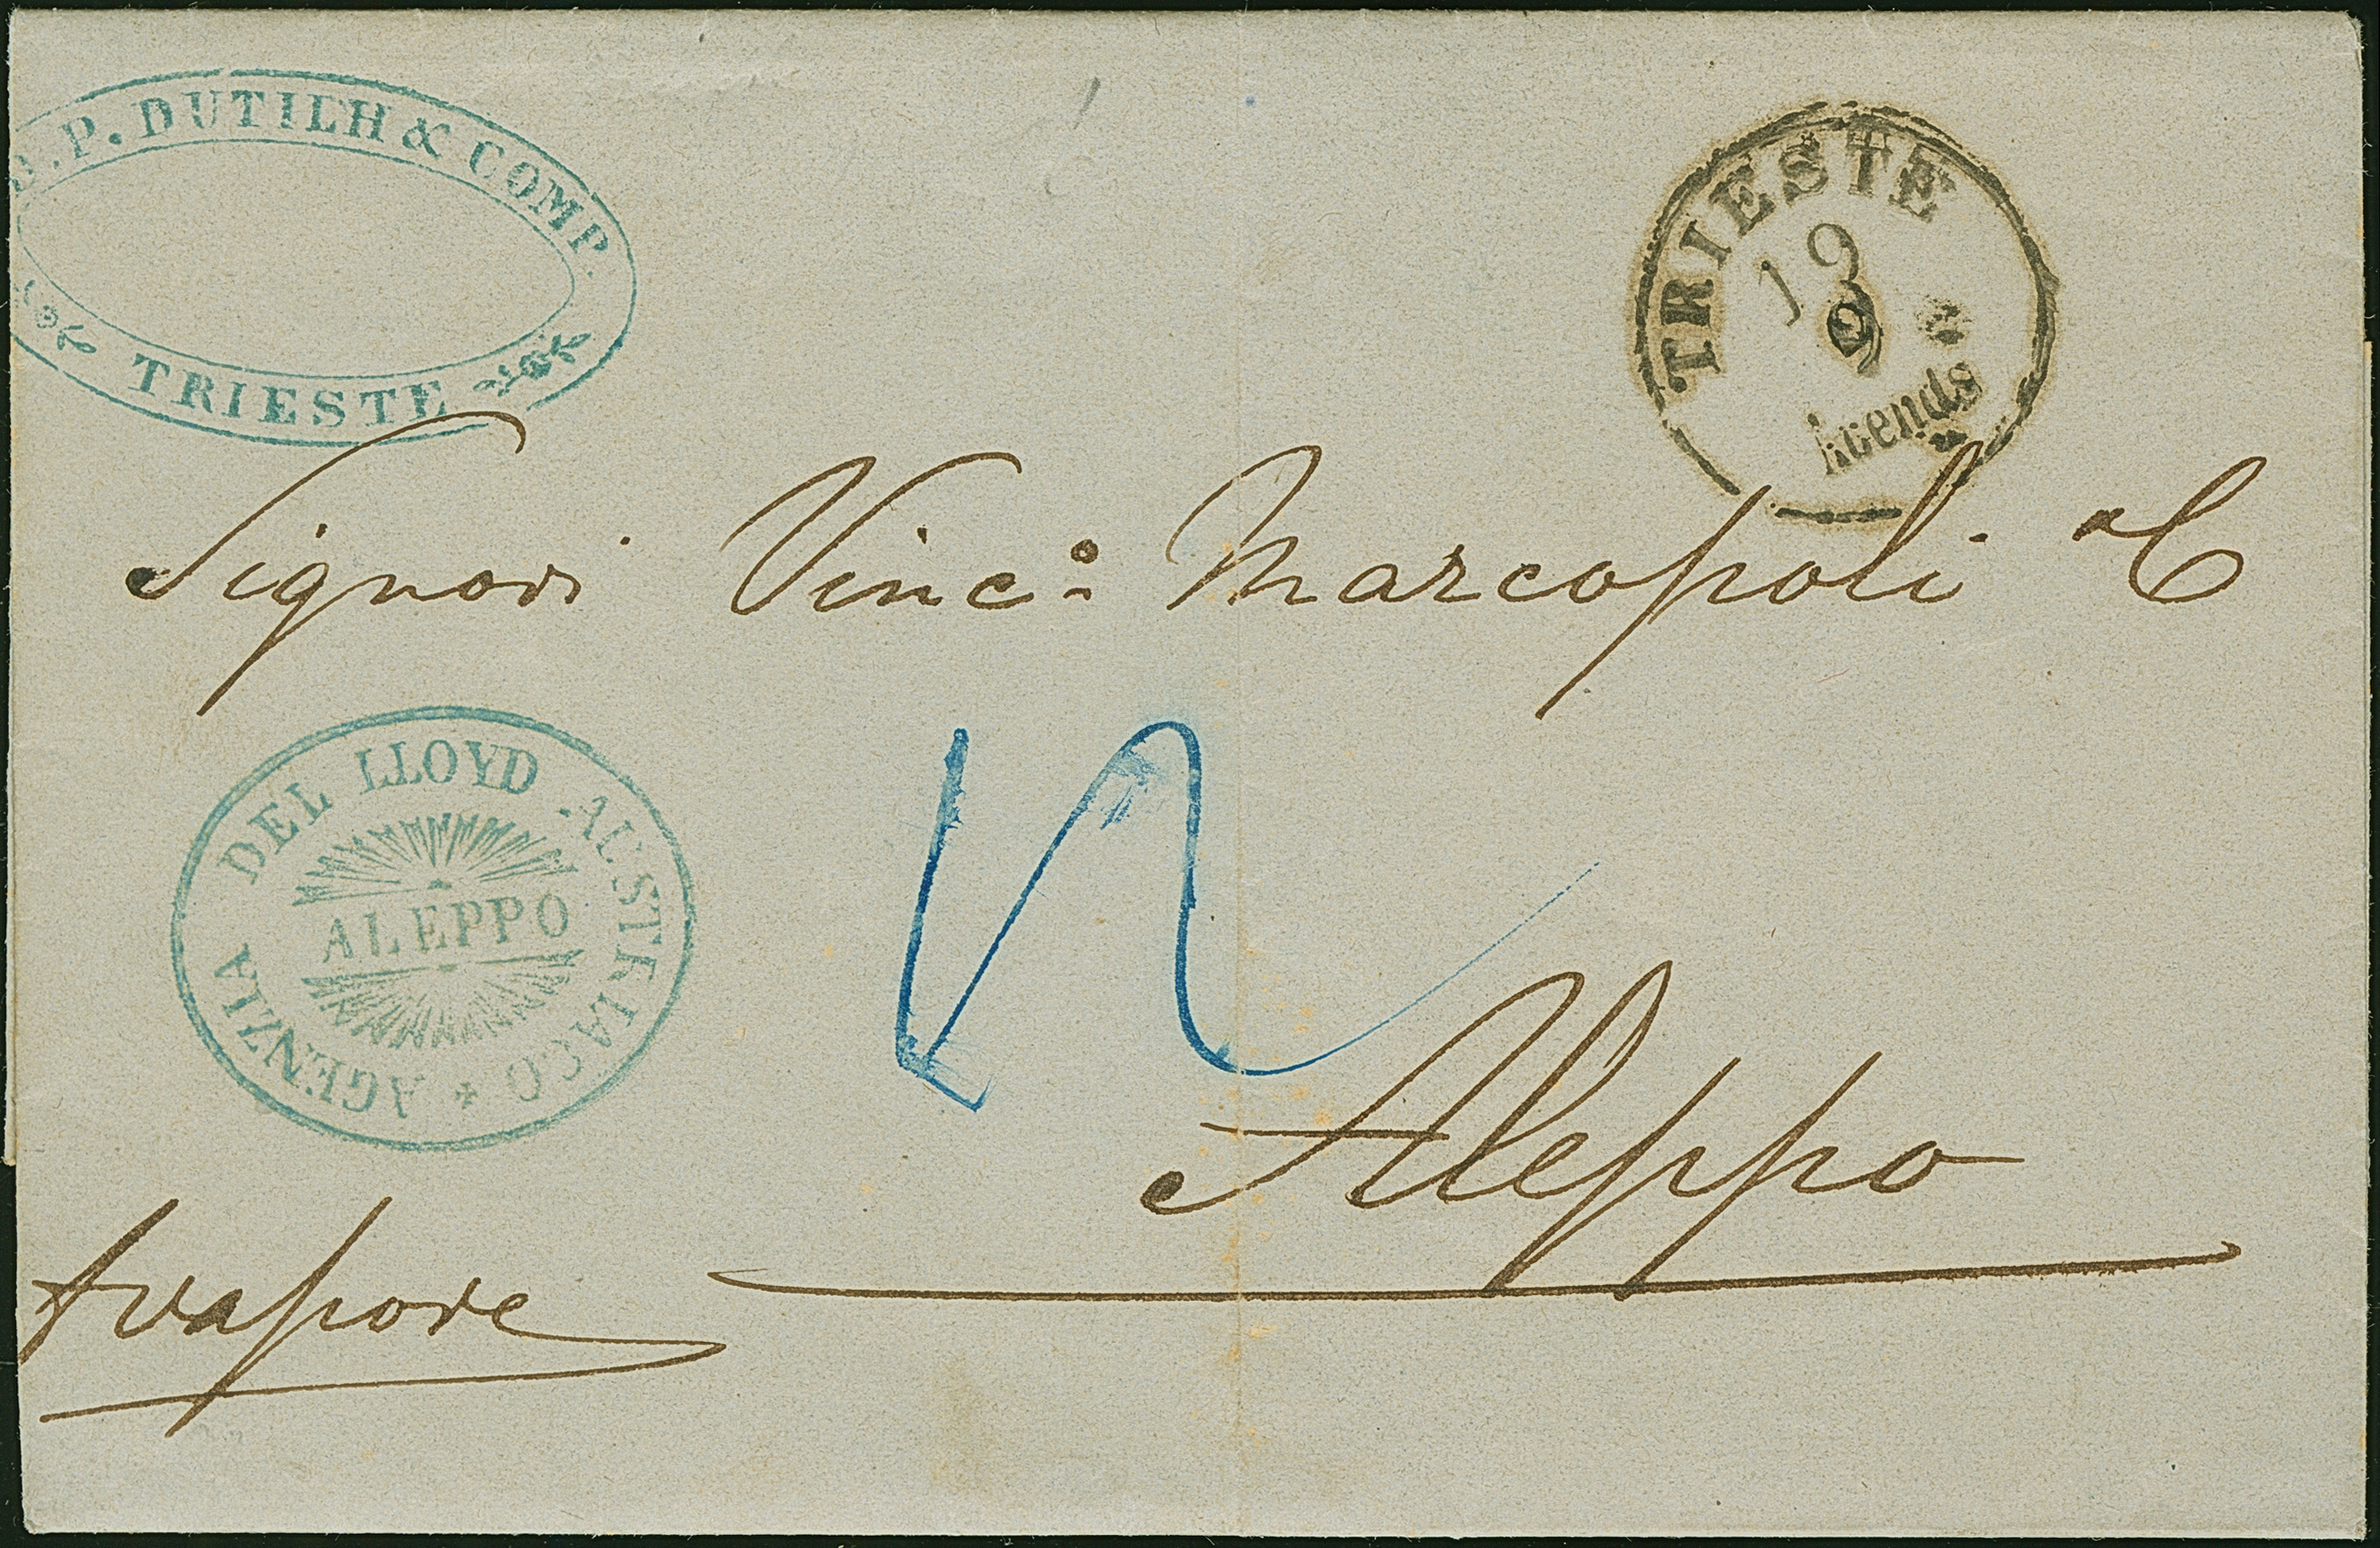 .P. DUTILH & COMP.
TRIESTE
TRIESTE
19
9
Abends
Signori Vinc: Marcopoli & C
AGENZIA DEL LLOYD AUSTRIACO
ALEPPO
Aleppo
vapore